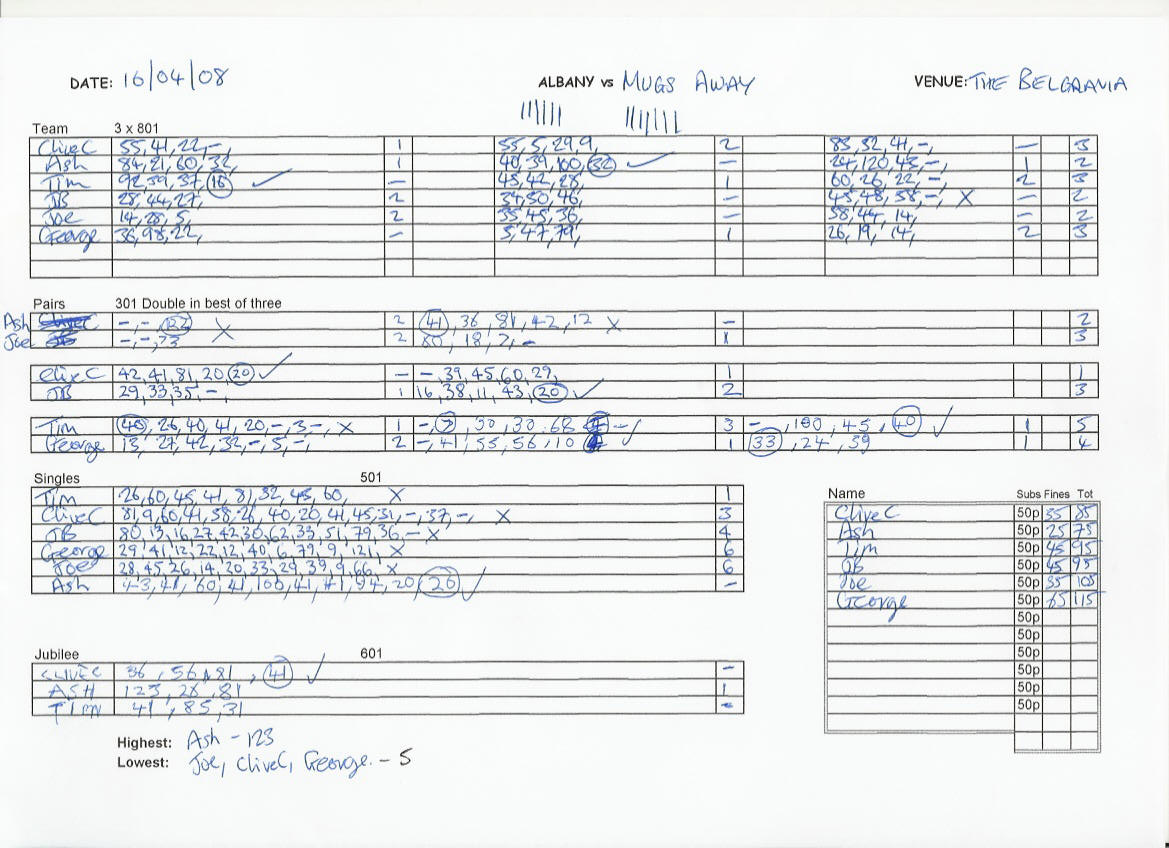 DATE: 16/04/08 ALBANY vs MUGS AWAY VENUE: THE BELGRAVIA
Team 3 x 801
CliveC 55, 41, 22, -, 1 55, 5, 29, 9, 2 83, 52, 41, -, - 3
Ash 84, 21, 60, 32, 1 40, 39, 100, 32 ✓ - 24, 120, 43, -, 1 2
Tim 92, 39, 37, 16 ✓ - 45, 42, 28, 1 60, 26, 22, -, 2 3
JB 28, 44, 27, 2 37, 50, 46, - 45, 48, 58, -, X - 2
Joe 14, 28, 5, 2 35, 45, 36, - 58, 44, 14, - 2
George 36, 98, 22, - 5, 47, 79, 1 26, 19, 14, 2 3
Pairs 301 Double in best of three
Ash -, -, 122 X 2 41, 36, 81, 42, 12 X - 2
Joe -, -, 73 X 2 80, 18, 7, - 1 3
CliveC 42, 41, 81, 20 20 ✓ - -, 39, 45, 60, 29, 1 1
JB 29, 33, 35, -, 1 16, 38, 11, 43, 20 ✓ 2 3
Tim 40, 26, 40, 41, 20, -, 3, -, X 1 -, 7, 30, 30, 68 - 3 -, 100, 45, 40 ✓ 1 5
George 13, 27, 42, 32, -, 5, -, 2 -, 41, 55, 56, 10 ✓ 1 33, 24, 39 1 4
Singles 501
Tim 26, 60, 45, 41, 81, 32, 45, 60, X 1
CliveC 81, 9, 60, 41, 58, 26, 40, 20, 41, 45, 31, -, 37, -, X 3
JB 80, 13, 16, 27, 42, 30, 62, 33, 51, 79, 36, - X 4
George 29, 41, 12, 22, 12, 40, 6, 79, 9, 121, X 6
Joe 28, 45, 26, 14, 20, 33, 29, 39, 9, 66, X 6
Ash 43, 41, 60, 41, 100, 41, 41, 94, 20, 20 ✓ -
Name Subs Fines Tot
CliveC 50p 35 85
Ash 50p 25 75
Tim 50p 45 95
JB 50p 45 95
Joe 50p 55 105
George 50p 65 115
50p
50p
50p
50p
50p
50p
Jubilee 601
CLIVEC 36, 56, 81, 41 ✓ -
ASH 123, 28, 81 1
TIM 41, 85, 31 -
Highest: Ash - 123
Lowest: Joe, CliveC, George. - 5